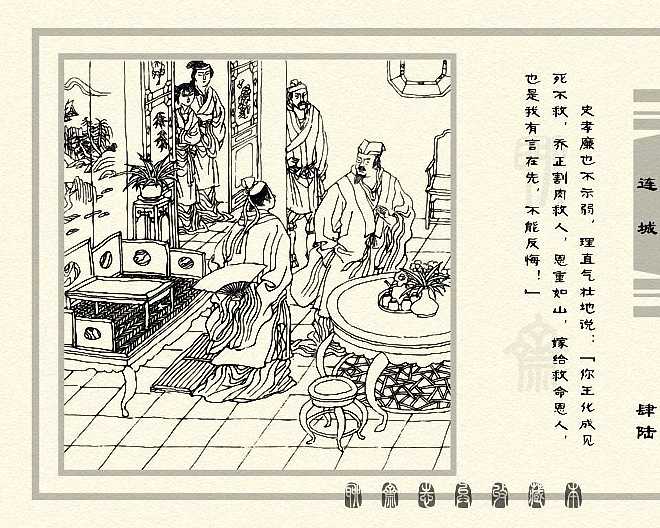 史孝廉也不示弱，理直气壮地说：「你王化成见
死不救，乔正割肉救人，恩重如山，嫁给救命恩人，
也是我有言在先，不能反悔！」
连城
肆陆